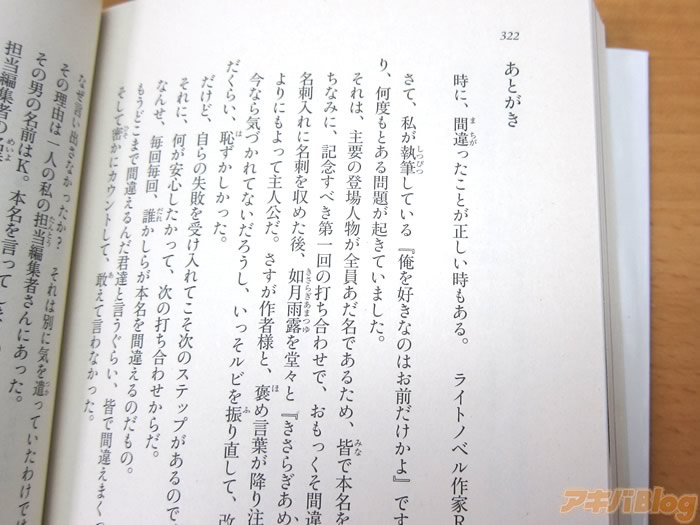 322
あとがき
時に、間違ったことが正しい時もある。 ライトノベル作家R
さて、私が執筆している『俺を好きなのはお前だけかよ』です
り、何度もとある問題が起きていました。
それは、主要の登場人物が全員あだ名であるため、皆で本名を
ちなみに、記念すべき第一回の打ち合わせで、おもっくそ間違
名刺入れに名刺を収めた後、如月雨露を堂々と『きさらぎあめ
よりにもよって主人公だ。さすが作者様と、褒め言葉が降り注
今なら気づかれてないだろうし、いっそルビを振り直して、改
だくらい、恥ずかしかった。
だけど、自らの失敗を受け入れてこそ次のステップがあるので
それに、何が安心したかって、次の打ち合わせからだ。
なんせ、毎回毎回、誰かしらが本名を間違えるのだもの。
もうどこまで間違えるんだ君達と言うぐらい、皆で間違えまく
そして密かにカウントして、敢えて言わなかった。
なぜ言い出さなかったか? それは別に気を遣っていたわけで
その理由は一人の私の担当編集者さんにあった。
その男の名前はK。本名を言って
担当編集者の
アキバBlog